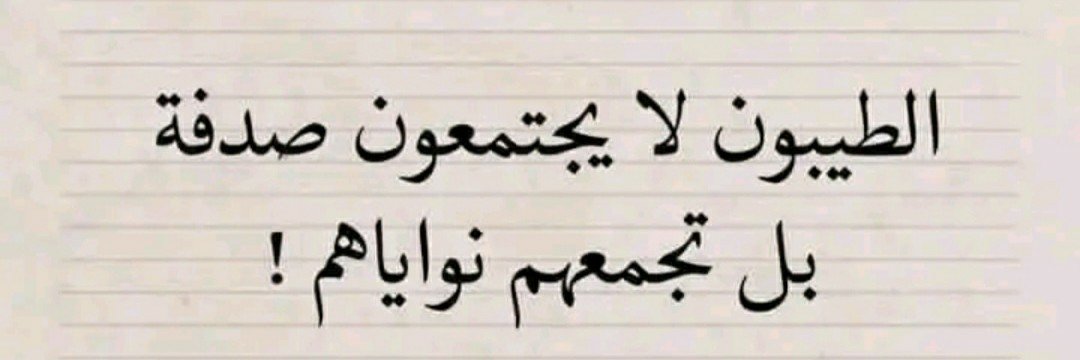 الطيبون لا يجتمعون صدفة
بل تجمعهم نواياهم !